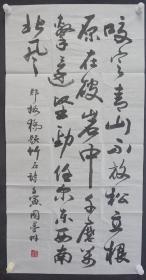 咬定青山不放松立根
原在破岩中千磨萬
擊還坚劲任尔东西南
北风
郑板桥题竹石诗壬寅